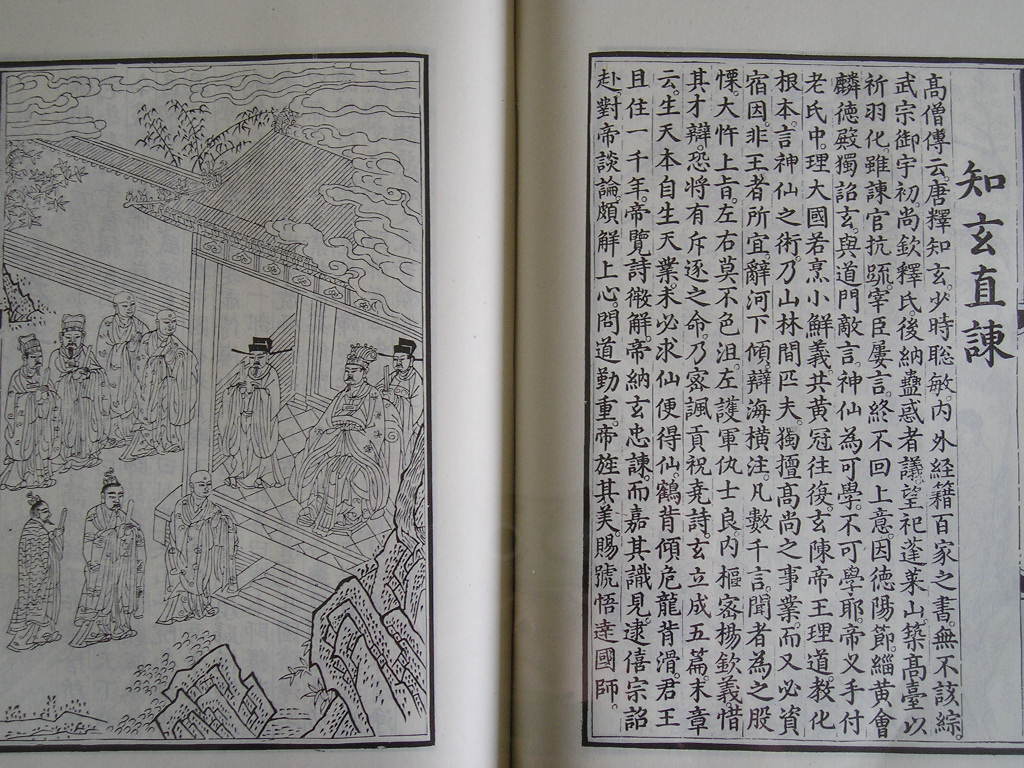 知玄直諫
高僧傳云。唐釋知玄。少時聡敏。内外経籍百家之書。無不該綜。
武宗御宇初。尚欽釋氏。後納蠱惑者議。望祀蓬莱山。築高臺以
祈羽化。雖諫官抗䟽。宰臣屢言。終不回上意。因德陽節。緇黄會
麟德殿。獨詔玄。與道門敵言。神仙為可學。不可學耶。帝叉手付
老氏中。理大國若烹小鮮義。共黄冠往復。玄陳帝王理道。教化
根本言神仙之術。乃山林間匹夫。獨擅高尚之事業。而又必資
宿因。非王者所宜。辭河下傾。辯海横注。凡數千言。聞者為之股
慄。大忤上旨。左右莫不色沮。左護軍仇士良。内樞宻楊欽義惜
其才辯。恐将有斥逐之命。乃宻諷貢祝堯詩。玄立成五篇。末章
云。生天本自生天業。未必求仙便得仙。鶴背傾危龍背滑。君王
且住一千年。帝覽詩微解。帝納玄忠諫。而嘉其識見。逮僖宗詔
赴對。帝談論。頗解上心。問道勤重。帝旌其美。賜號悟逹國師。